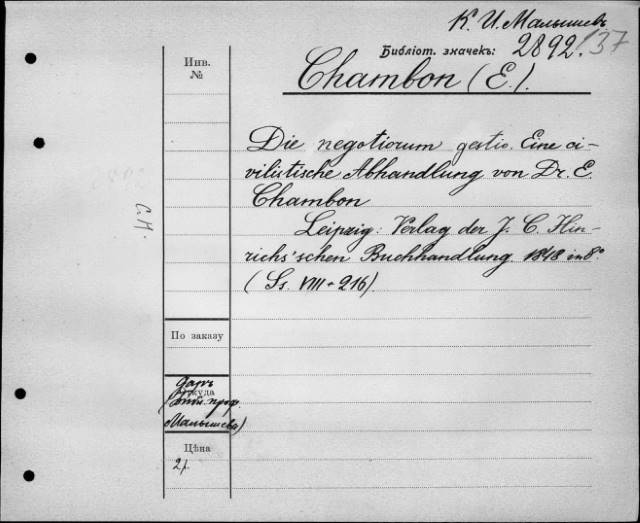 К. И. Малышевъ
Библіот. значекъ: 2892./37
Инв.
№
Chambon (E.).
Die negotiorum gestio. Eine ci-
vilistische Abhandlung von Dr. E.
Chambon
Leipzig: Verlag der J. C. Hin-
richs'schen Buchhandlung 1848 in 8°
(Ss. VIII + 216).
По заказу
Даръ
Откуда
проф.
Малышева)
Цѣна
2р.